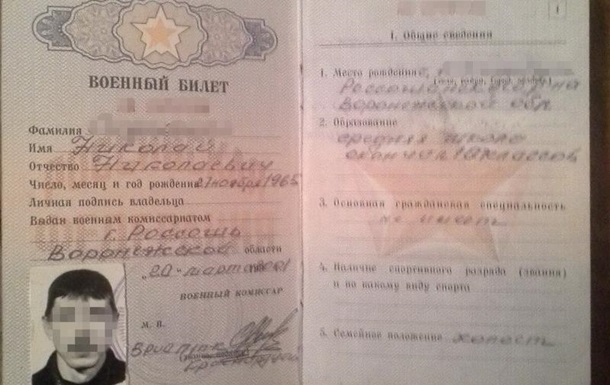 ВОЕННЫЙ БИЛЕТ
Фамилия
Имя Николай
Отчество Николаевич
Число, месяц и год рождения 21 ноября 1965
Личная подпись владельца
Выдан военным комиссариатом
г. Россошь
Воронежской области
"20" марта
ВОЕННЫЙ КОМИССАР
М. П.
1
I. Общие сведения
1. Место рождения с.
(село, город, район)
Россошанского р-на
Воронежской обл
2. Образование
средняя школа
окончил 10 классов
3. Основная гражданская специальность
не имеет
4. Наличие спортивного разряда (звания)
и по какому виду спорта
5. Семейное положение холост